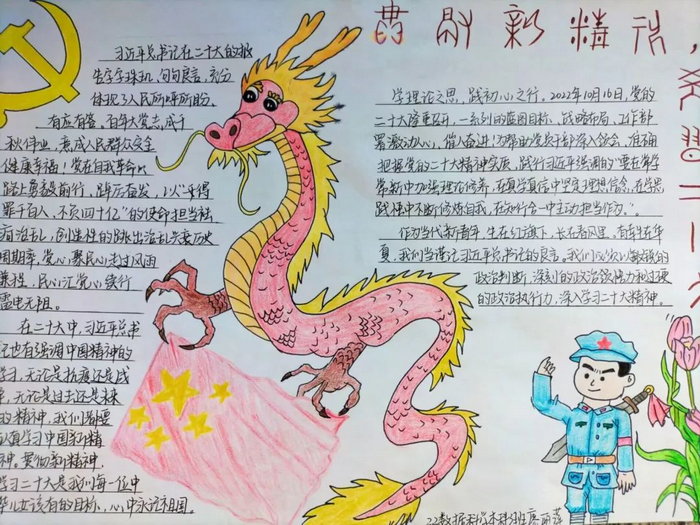 贯彻新精神,
学习二十大
习近平总书记在二十大的报
告字字珠玑,句句良言,充分
体现了人民所呼所盼,
有应有答。百年大党志成千
秋伟业,兼成人民群众安全
健康幸福!党在自我革命
踔厉奋发,以“
罪千百人,不负四十亿”的使命担当
创造性的跳出治乱兴衰历史
周期率,党心聚民心走过风雨
兼程,民心汇党心续行
雷电无阻。
在二十大中,习近平总书
记也有强调中国精神的
学习,无论是抗疫还是战
争,无论是过去还是未来
的精神,我们都要
认真学习中国新精
神。贯彻新精神,
学习二十大是我们每一位中
华儿女该有的目标,心中永记祖国。
学理论之思,践初心之行。2022年10月16日,党的
二十大隆重召开,一系列的蓝图目标、战略布局、工作部
署激动人心,催人奋进!为帮助党员干部深入领会,准确
把握党的二十大精神实质,践行习近平强调的“要在常学
常新中加强理论修养,在真学真信中坚定理想信念,在学思
践悟中不断修炼自我,在知行合一中主动担当作为。”
作为当代新青年,生在红旗下,长在春风里,有幸生在华
夏,我们当谨记习近平总书记的良言。我们必须以敏锐的
政治判断,深刻的政治领悟力和过硬
的政治执行力,深入学习二十大精神。
22数据科学本科班